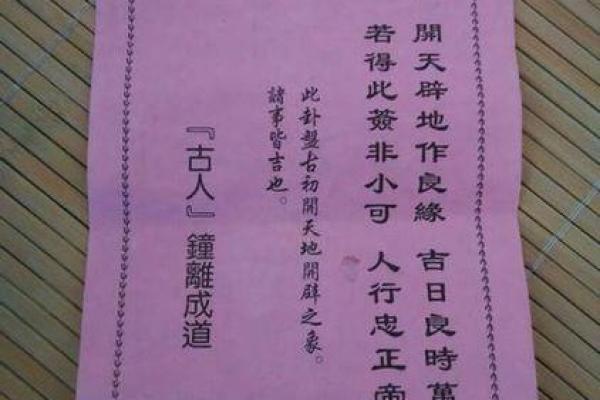 開天辟地作良緣 吉日良時萬
若得此簽非小可 人行忠正帝
此卦盤古初開天地開辟之象。
諸事皆吉也。
『古人』鐘離成道